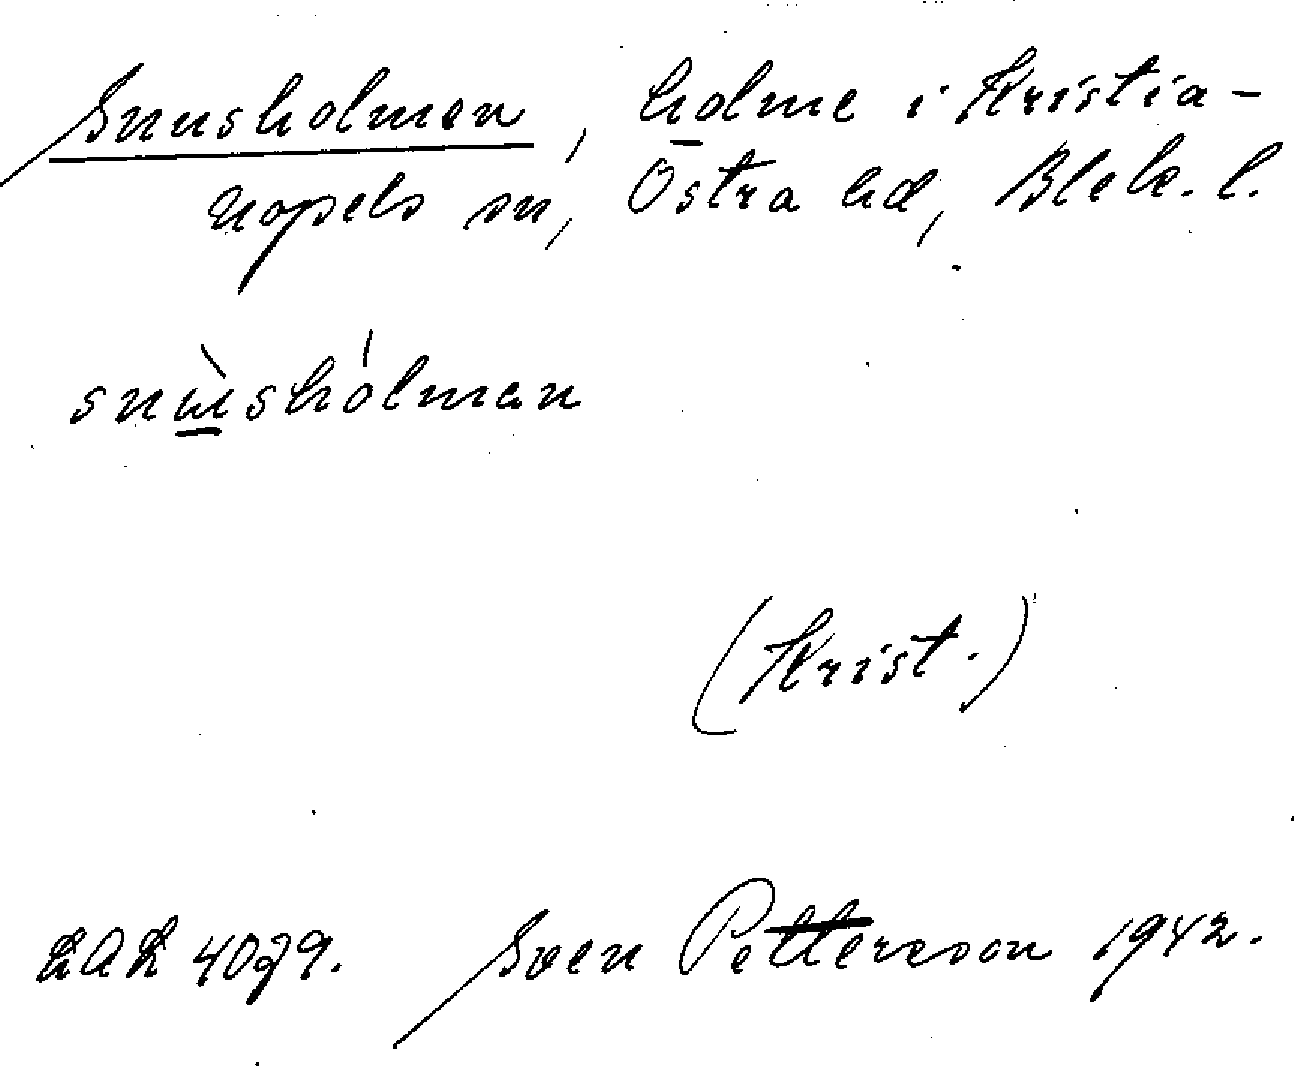 Snusholmen, holme i Kristia-
nopels sn, Östra hd, Blek. l.
snù̲shólmən
(Krist.)
LAL 4079. Sven Pettersson 1942.